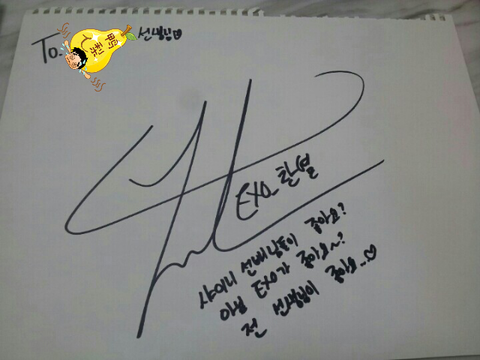 To. 선생님♡
EXO_찬열
샤이니 선배님들이 좋아요?
아님 EXO가 좋아요~?
전 선생님이 좋아요..♡